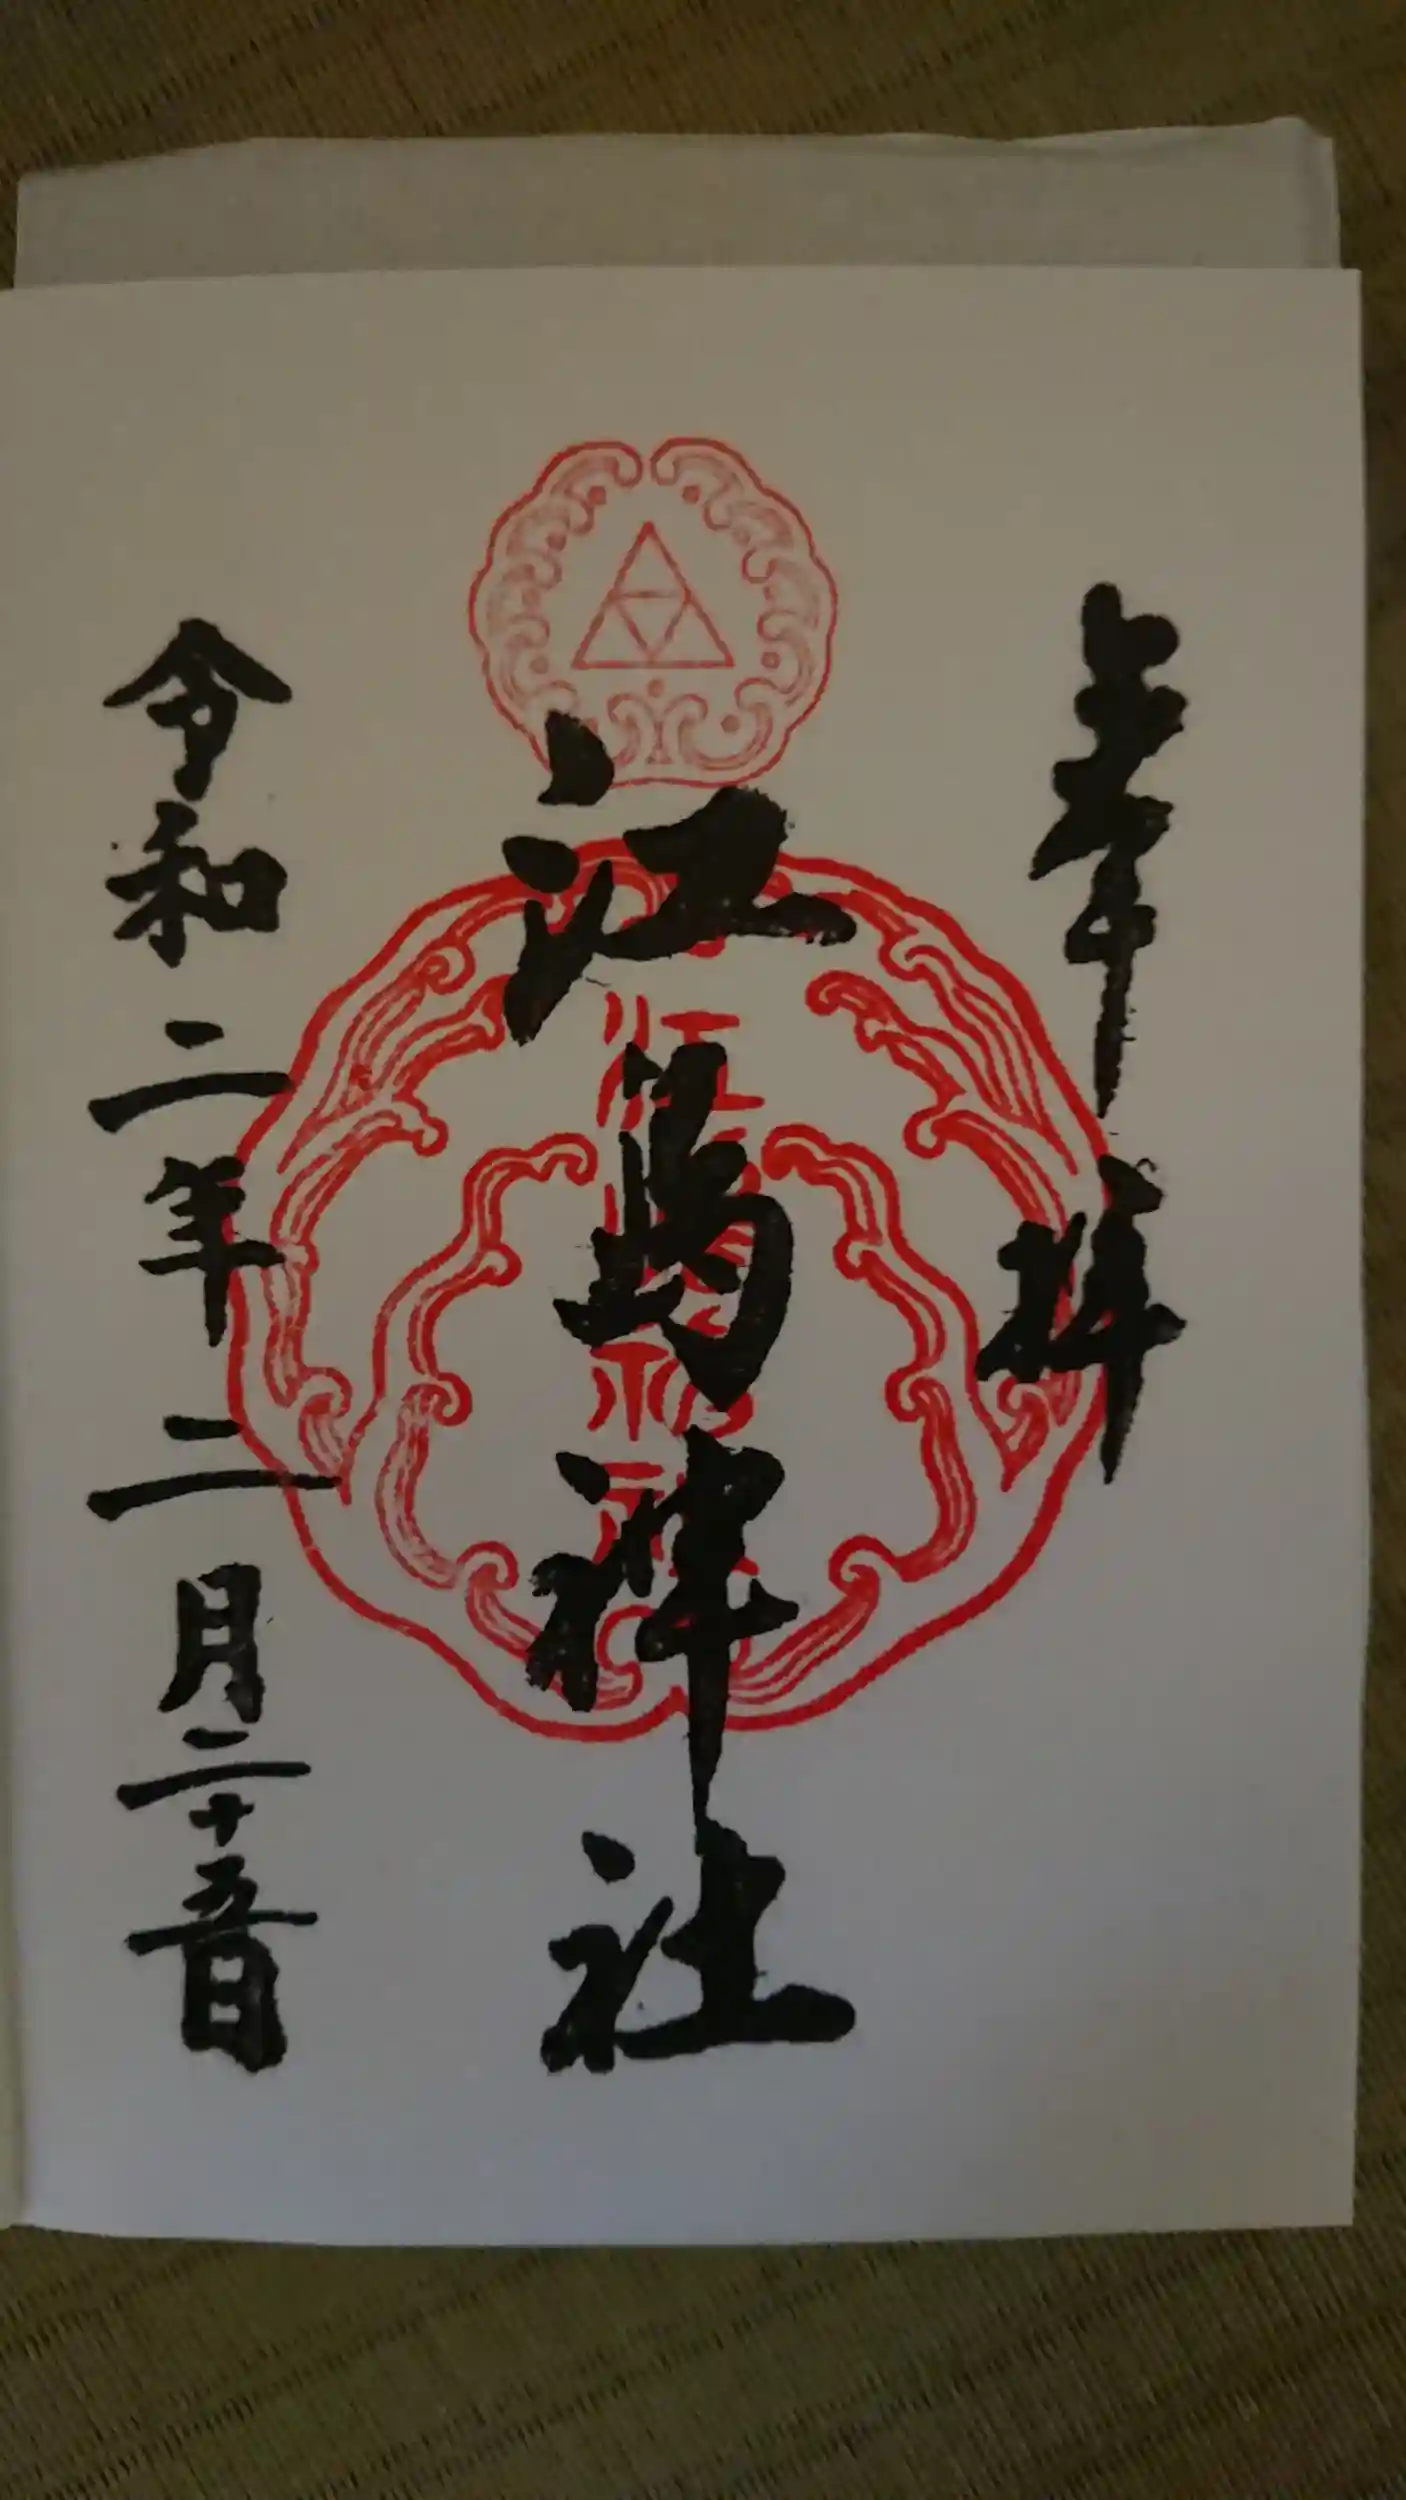 奉拝
江島神社
令和二年二月二十五日